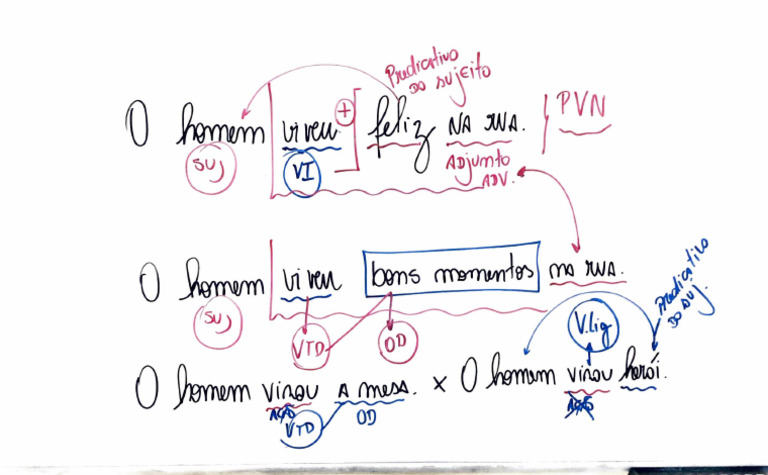 Predicativo
do sujeito
O homem viveu + feliz na rua. PVN
suj VI Adjunto
adv.
O homem viveu bons momentos na rua.
suj VTD OD
V.lig Predicativo
do suj.
O homem virou a mesa. x O homem virou herói.
ação VTD OD ação